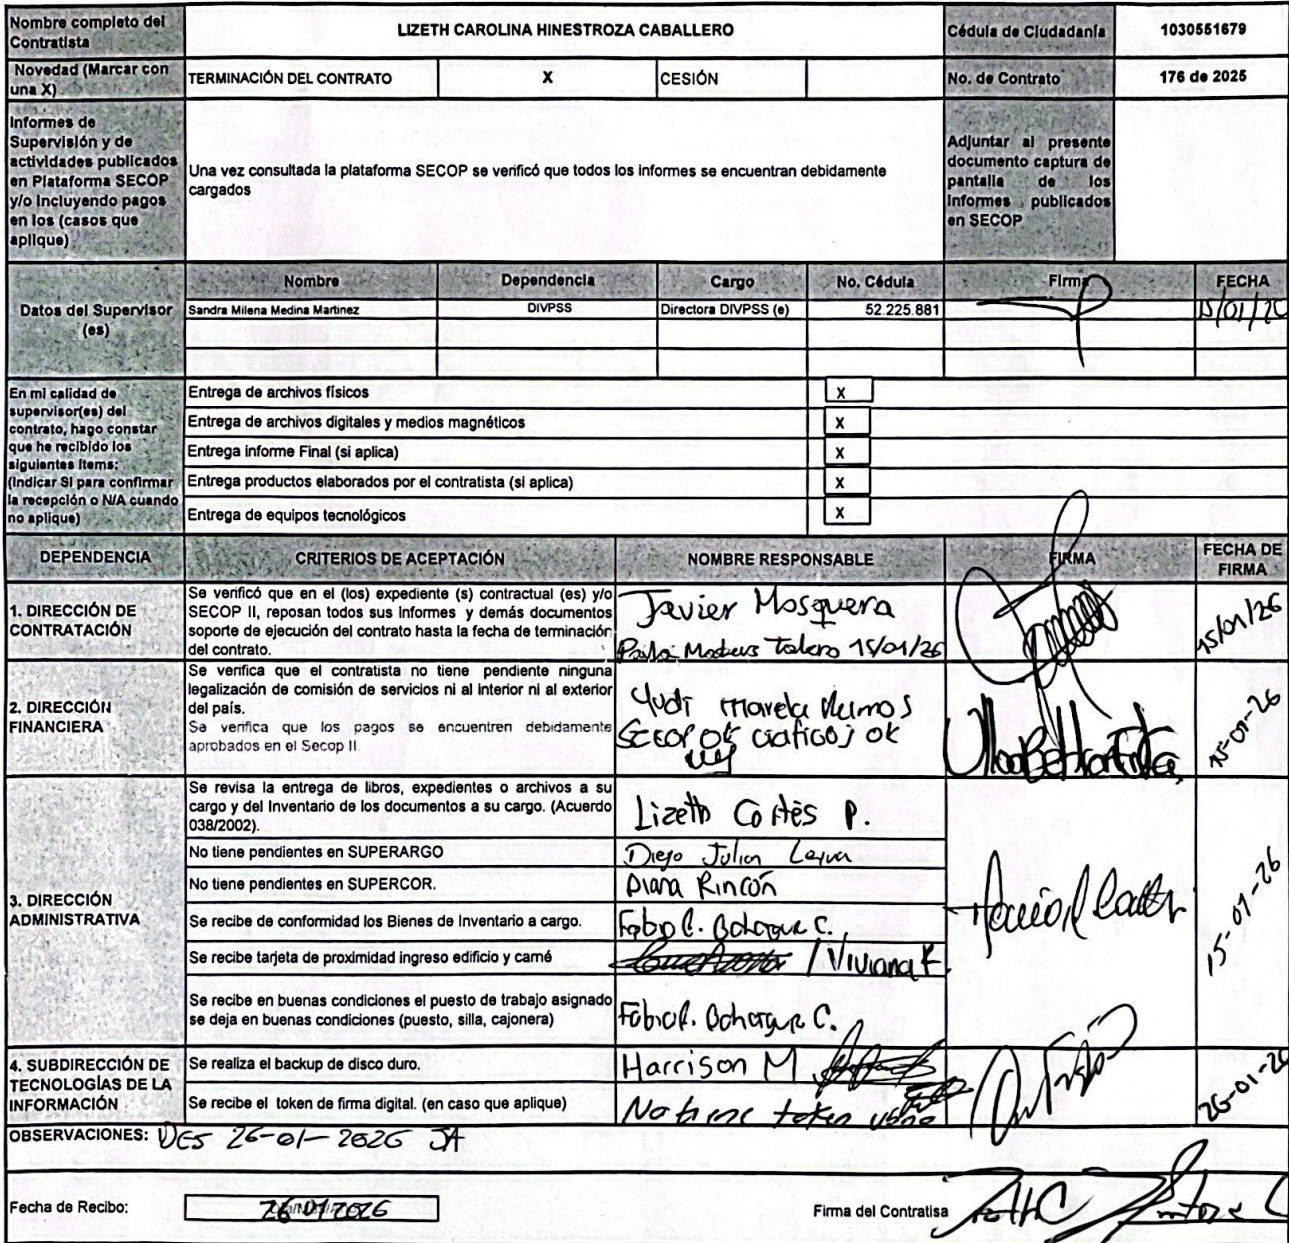 Nombre completo del Contratista
LIZETH CAROLINA HINESTROZA CABALLERO
Cédula de Ciudadanía
1030551679
Novedad (Marcar con una X)
TERMINACIÓN DEL CONTRATO
X
CESIÓN
No. de Contrato
176 de 2025
Informes de
Supervisión y de
actividades publicados
en Plataforma SECOP
y/o Incluyendo pagos
en los (casos que
aplique)
Una vez consultada la plataforma SECOP se verificó que todos los informes se encuentran debidamente
cargados
Adjuntar al presente
documento captura de
pantalla de los
Informes publicados
en SECOP
Datos del Supervisor
(es)
Nombre
Dependencia
Cargo
No. Cédula
Firma
FECHA
Sandra Milena Medina Martinez
DIVPSS
Directora DIVPSS (e)
52.225.881
15/01/26
En mi calidad de
supervisor(es) del
contrato, hago constar
que he recibido los
siguientes ítems:
(Indicar SI para confirmar
la recepción o N/A cuando
no aplique)
Entrega de archivos físicos
X
Entrega de archivos digitales y medios magnéticos
X
Entrega informe Final (si aplica)
X
Entrega productos elaborados por el contratista (si aplica)
X
Entrega de equipos tecnológicos
X
DEPENDENCIA
CRITERIOS DE ACEPTACIÓN
NOMBRE RESPONSABLE
FIRMA
FECHA DE FIRMA
1. DIRECCIÓN DE
CONTRATACIÓN
Se verificó que en el (los) expediente (s) contractual (es) y/o
SECOP II, reposan todos sus informes y demás documentos
soporte de ejecución del contrato hasta la fecha de terminación
del contrato.
Javier Mosquera
15/01/26
15/01/26
2. DIRECCIÓN
FINANCIERA
Se verifica que el contratista no tiene pendiente ninguna
legalización de comisión de servicios ni al interior ni al exterior
del país.
Se verifica que los pagos se encuentren debidamente
aprobados en el Secop II.
SECOP ok ok
15-01-26
3. DIRECCIÓN
ADMINISTRATIVA
Se revisa la entrega de libros, expedientes o archivos a su
cargo y del Inventario de los documentos a su cargo. (Acuerdo
038/2002).
Lizeth Cortés P.
No tiene pendientes en SUPERARGO
Diego Julian
No tiene pendientes en SUPERCOR.
Diana Rincón
Se recibe de conformidad los Bienes de Inventario a cargo.
Se recibe tarjeta de proximidad ingreso edificio y carné
/ Viviana
Se recibe en buenas condiciones el puesto de trabajo asignado
se deja en buenas condiciones (puesto, silla, cajonera)
15-01-26
4. SUBDIRECCIÓN DE
TECNOLOGÍAS DE LA
INFORMACIÓN
Se realiza el backup de disco duro.
Harrison M
Se recibe el token de firma digital. (en caso que aplique)
No tiene token
26-01-26
OBSERVACIONES: 26-01-2026 JA
Fecha de Recibo:
26 01 2026
Firma del Contratisa